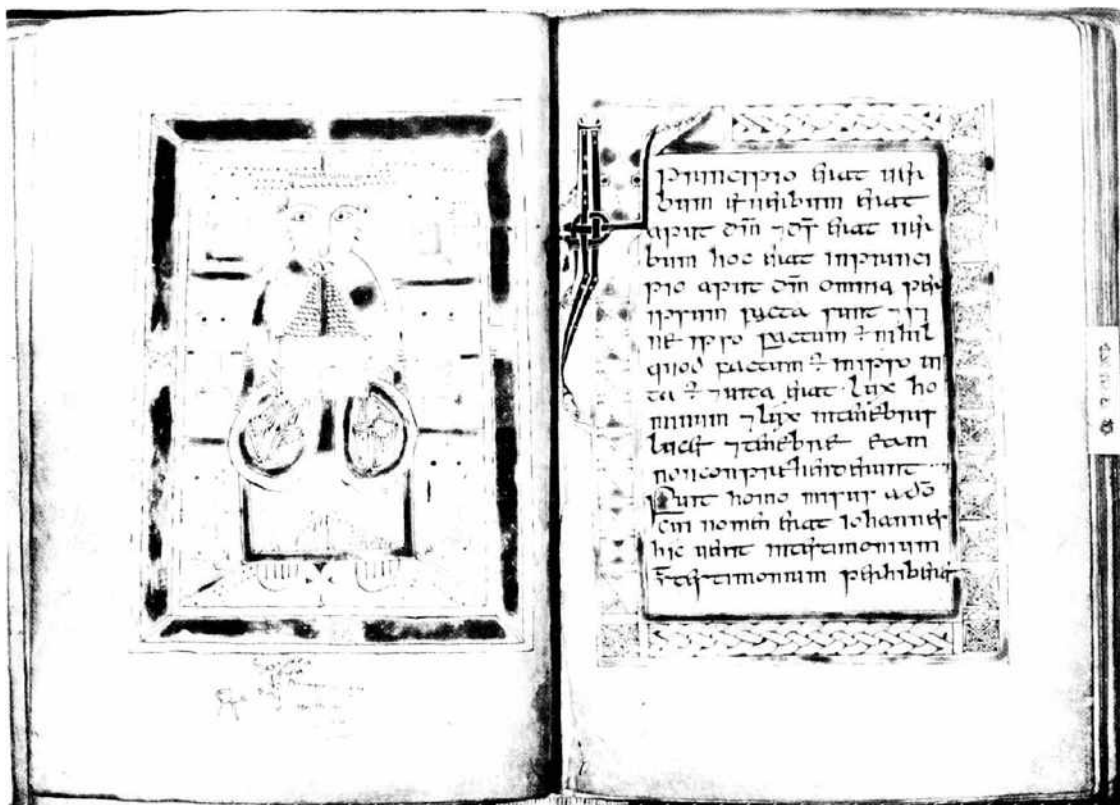 IN principio erat uer
bum et uerbum erat
aput dm̄ ⁊ ds̄ erat uer
bum hoc erat inprinci
pio aput dm̄ omnia per
ipsum facta sunt ⁊ si
ne ipso factum ÷ nihil
quod factum ÷ inipso ui
ta ÷ ⁊ uita erat lux ho
minum ⁊ lux intenebris
lucet ⁊ tenebre eam
nonconprehenderunt
Fuit homo misus adō
cui nomen erat iohannes
hic uenit intestimonium
testimonium perhiberet